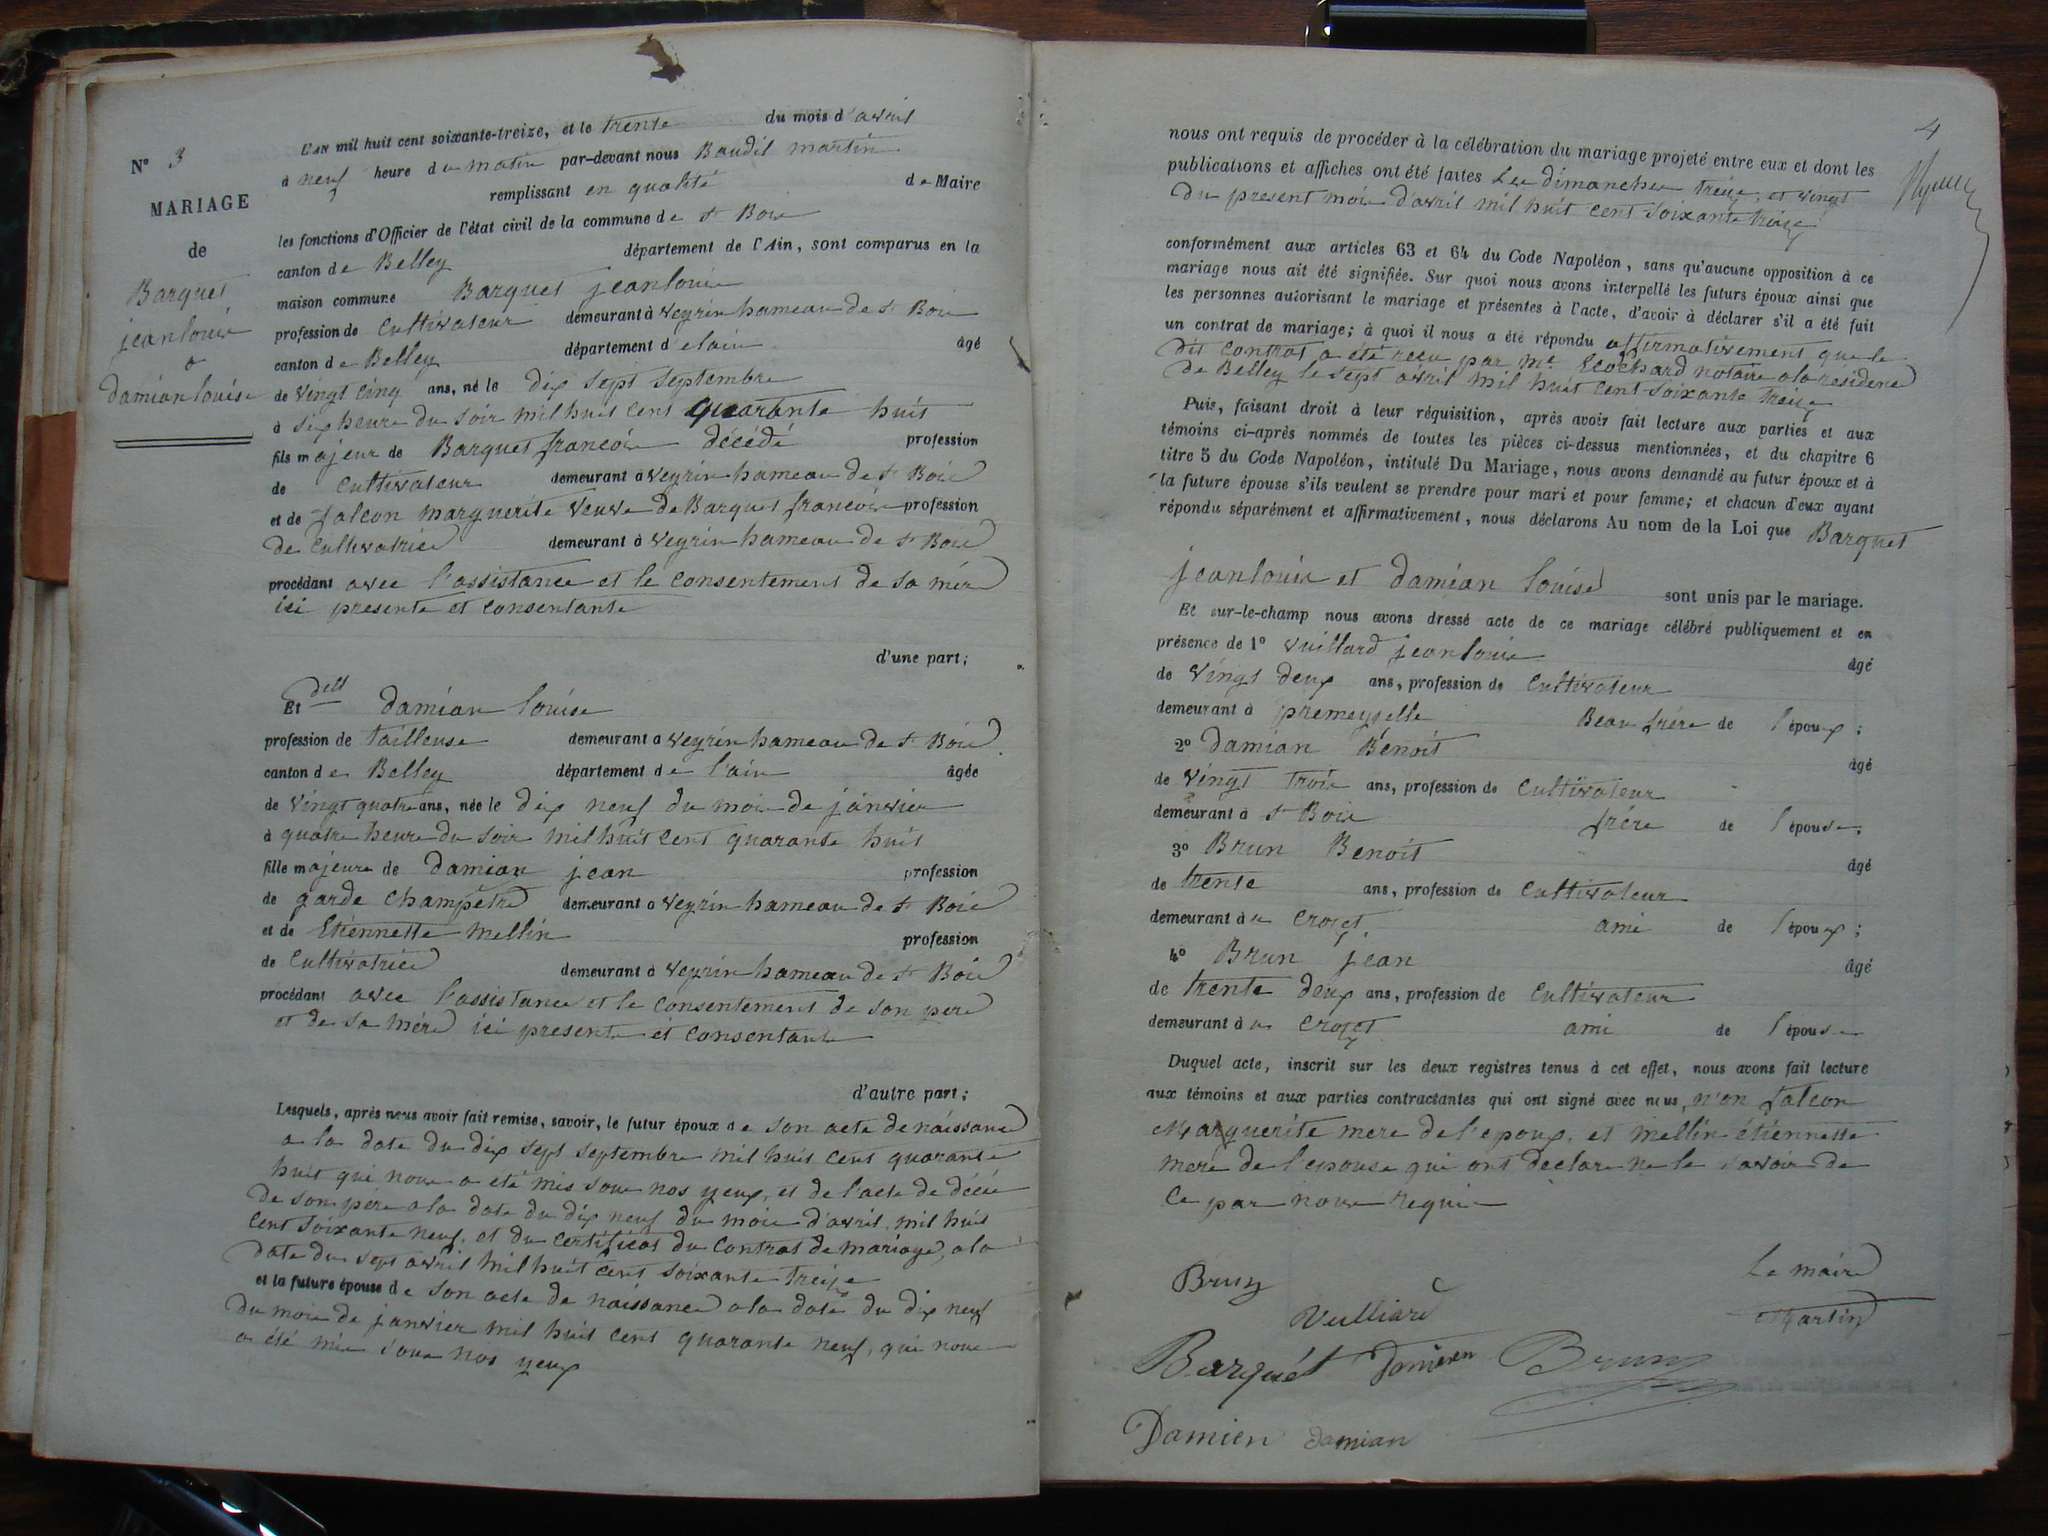 N° 3
MARIAGE
de
Barquet
jeanlouis
a
damian louise
L'AN mil huit cent soixante-treize, et le trente du mois d'avril
à neuf heure du matin par-devant nous Baudil martin
remplissant en qualité de Maire
les fonctions d'Officier de l'état civil de la commune de St Bois
canton de Belley département de l'Ain, sont comparus en la
maison commune Barquet jeanlouis
profession de cultivateur demeurant à veyrin hameau de St Bois
canton de Belley département d'elain âgé
de vingt cinq ans, né le dix sept septembre
à six heure du soir mil huit cent quarante huit
fils majeur de Barquet françois décédé profession
de cultivateur demeurant à veyrin hameau de St Bois
et de falcon marguerite veuve de Barquet françois profession
de cultivatrice demeurant à veyrin hameau de St Bois
procédant avec l'assistance et le consentement de sa mère
ici presente et consentante
d'une part;
Et dlle damian louise
profession de tailleuse demeurant a veyrin hameau de St Bois
canton de Belley département de l'ain âgée
de vingt quatre ans, née le dix neuf du mois de janvier
à quatre heure du soir mil huit cent quarante huit
fille majeure de damian jean profession
de garde champêtre demeurant a veyrin hameau de St Bois
et de Etiennette mellin profession
de cultivatrice demeurant à veyrin hameau de St Bois
procédant avec l'assistance et le consentement de son pere
et de sa mère ici presente et consentante
d'autre part;
Lesquels, après nous avoir fait remise, savoir, le futur époux de son acte de naissance
a la date du dix sept septembre mil huit cent quarante
huit qui nous a été mis sous nos yeux, et de l'acte de décés
de son père a la date du dix neuf du mois d'avril mil huit
cent soixante neuf, et du certificat du contrat de mariage, a la
date du sept avril mil huit cent soixante treize
et la future épouse de son acte de naissance a la date du dix neuf
du mois de janvier mil huit cent quarante neuf, qui nous
a été mis sous nos yeux
4
nous ont requis de procéder à la célébration du mariage projeté entre eux et dont les
publications et affiches ont été faites Les dimanches treize, et vingt
du present mois d'avril mil huit cent soixante treize
conformément aux articles 63 et 64 du Code Napoléon, sans qu'aucune opposition à ce
mariage nous ait été signifiée. Sur quoi nous avons interpellé les futurs époux ainsi que
les personnes autorisant le mariage et présentes à l'acte, d'avoir à déclarer s'il a été fait
un contrat de mariage; à quoi il nous a été répondu affirmativement que le
dit contrat a été reçu par me Ecochard notaire a la résidence
de Belley le sept avril mil huit cent soixante treize
Puis, faisant droit à leur réquisition, après avoir fait lecture aux parties et aux
témoins ci-après nommés de toutes les pièces ci-dessus mentionnées, et du chapitre 6
titre 5 du Code Napoléon, intitulé Du Mariage, nous avons demandé au futur époux et à
la future épouse s'ils veulent se prendre pour mari et pour femme; et chacun d'eux ayant
répondu séparément et affirmativement, nous déclarons Au nom de la Loi que Barquet
jeanlouis et damian louise sont unis par le mariage.
Et sur-le-champ nous avons dressé acte de ce mariage célébré publiquement et en
présence de 1° vuillard jeanlouis âgé
de vingt deux ans, profession de cultivateur
demeurant à premeyselle Beau frére de l'époux;
2° damian Benoit âgé
de vingt trois ans, profession de cultivateur
demeurant à St Bois frére de l'épouse;
3° Brun Benoit âgé
de trente ans, profession de cultivateur
demeurant à a crozet ami de l'époux;
4° Brun jean âgé
de trente deux ans, profession de cultivateur
demeurant à a crozet ami de l'épouse
Duquel acte, inscrit sur les deux registres tenus à cet effet, nous avons fait lecture
aux témoins et aux parties contractantes qui ont signé avec nous, n'on falcon
Marguerite mere de l'epoux, et mellin étiennette
mere de l'epouse qui ont declare ne le savoir de
ce par nous requis
Brun
Le maire
Vulliard
Martin
Barquét Damien Brun
Damien damian